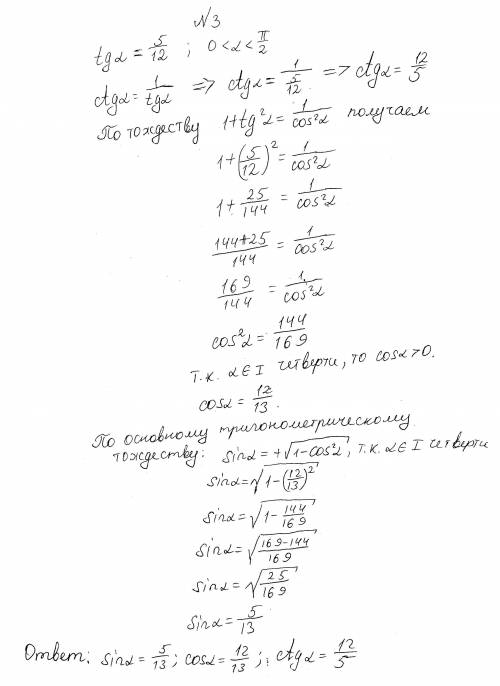 N3
tgα = 5/12 ; 0<α<π/2
ctgα = 1/tgα => ctgα = 1/(5/12) => ctgα = 12/5
По тождеству 1+tg²α = 1/cos²α получаем
1+(5/12)² = 1/cos²α
1+ 25/144 = 1/cos²α
(144+25)/144 = 1/cos²α
169/144 = 1/cos²α
cos²α = 144/169
Т.к. α ∈ I четверти, то cosα>0.
cosα = 12/13.
По основному тригонометрическому
тождеству: sinα = +√(1-cos²α), т.к. α ∈ I четверти
sinα = √(1-(12/13)²)
sinα = √(1-144/169)
sinα = √((169-144)/169)
sinα = √(25/169)
sinα = 5/13
Ответ: sinα = 5/13; cosα = 12/13; ; ctgα = 12/5